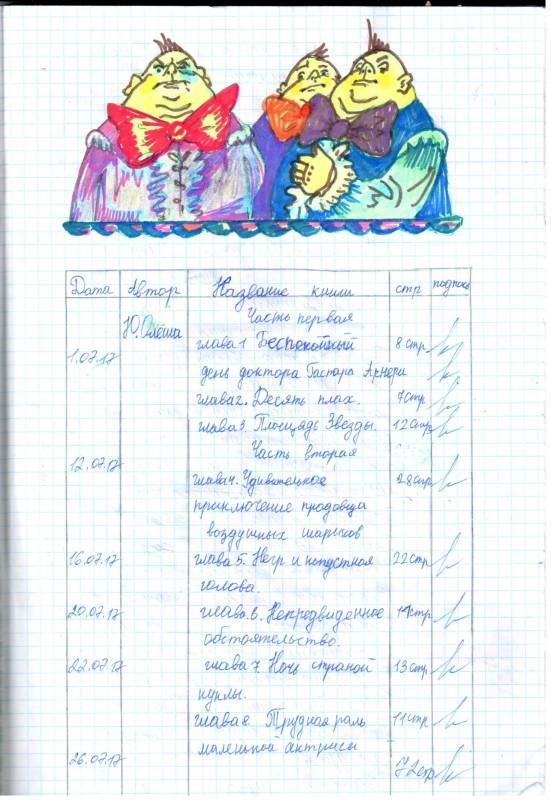 Дата Автор Название книги стр подпись
Часть первая
Ю. Олеша
1.07.17 глава 1 Беспокойный 8 стр
день доктора Гаспара Арнери
глава 2. Десять плах. 7 стр
глава 3. Площадь Звезды. 12 стр
Часть вторая
12.07.17 глава 4. Удивительное 28 стр
приключение продовца
воздушных шариков
16.07.17 глава 5. Негр и капустная 22 стр
голова.
20.07.17 глава 6. Непредвиденное 14 стр
обстоятельство.
22.07.17 глава 7. Ночь страной 13 стр
куклы.
глава 8 Трудная роль 11 стр
маленькой актрисы
26.07.17